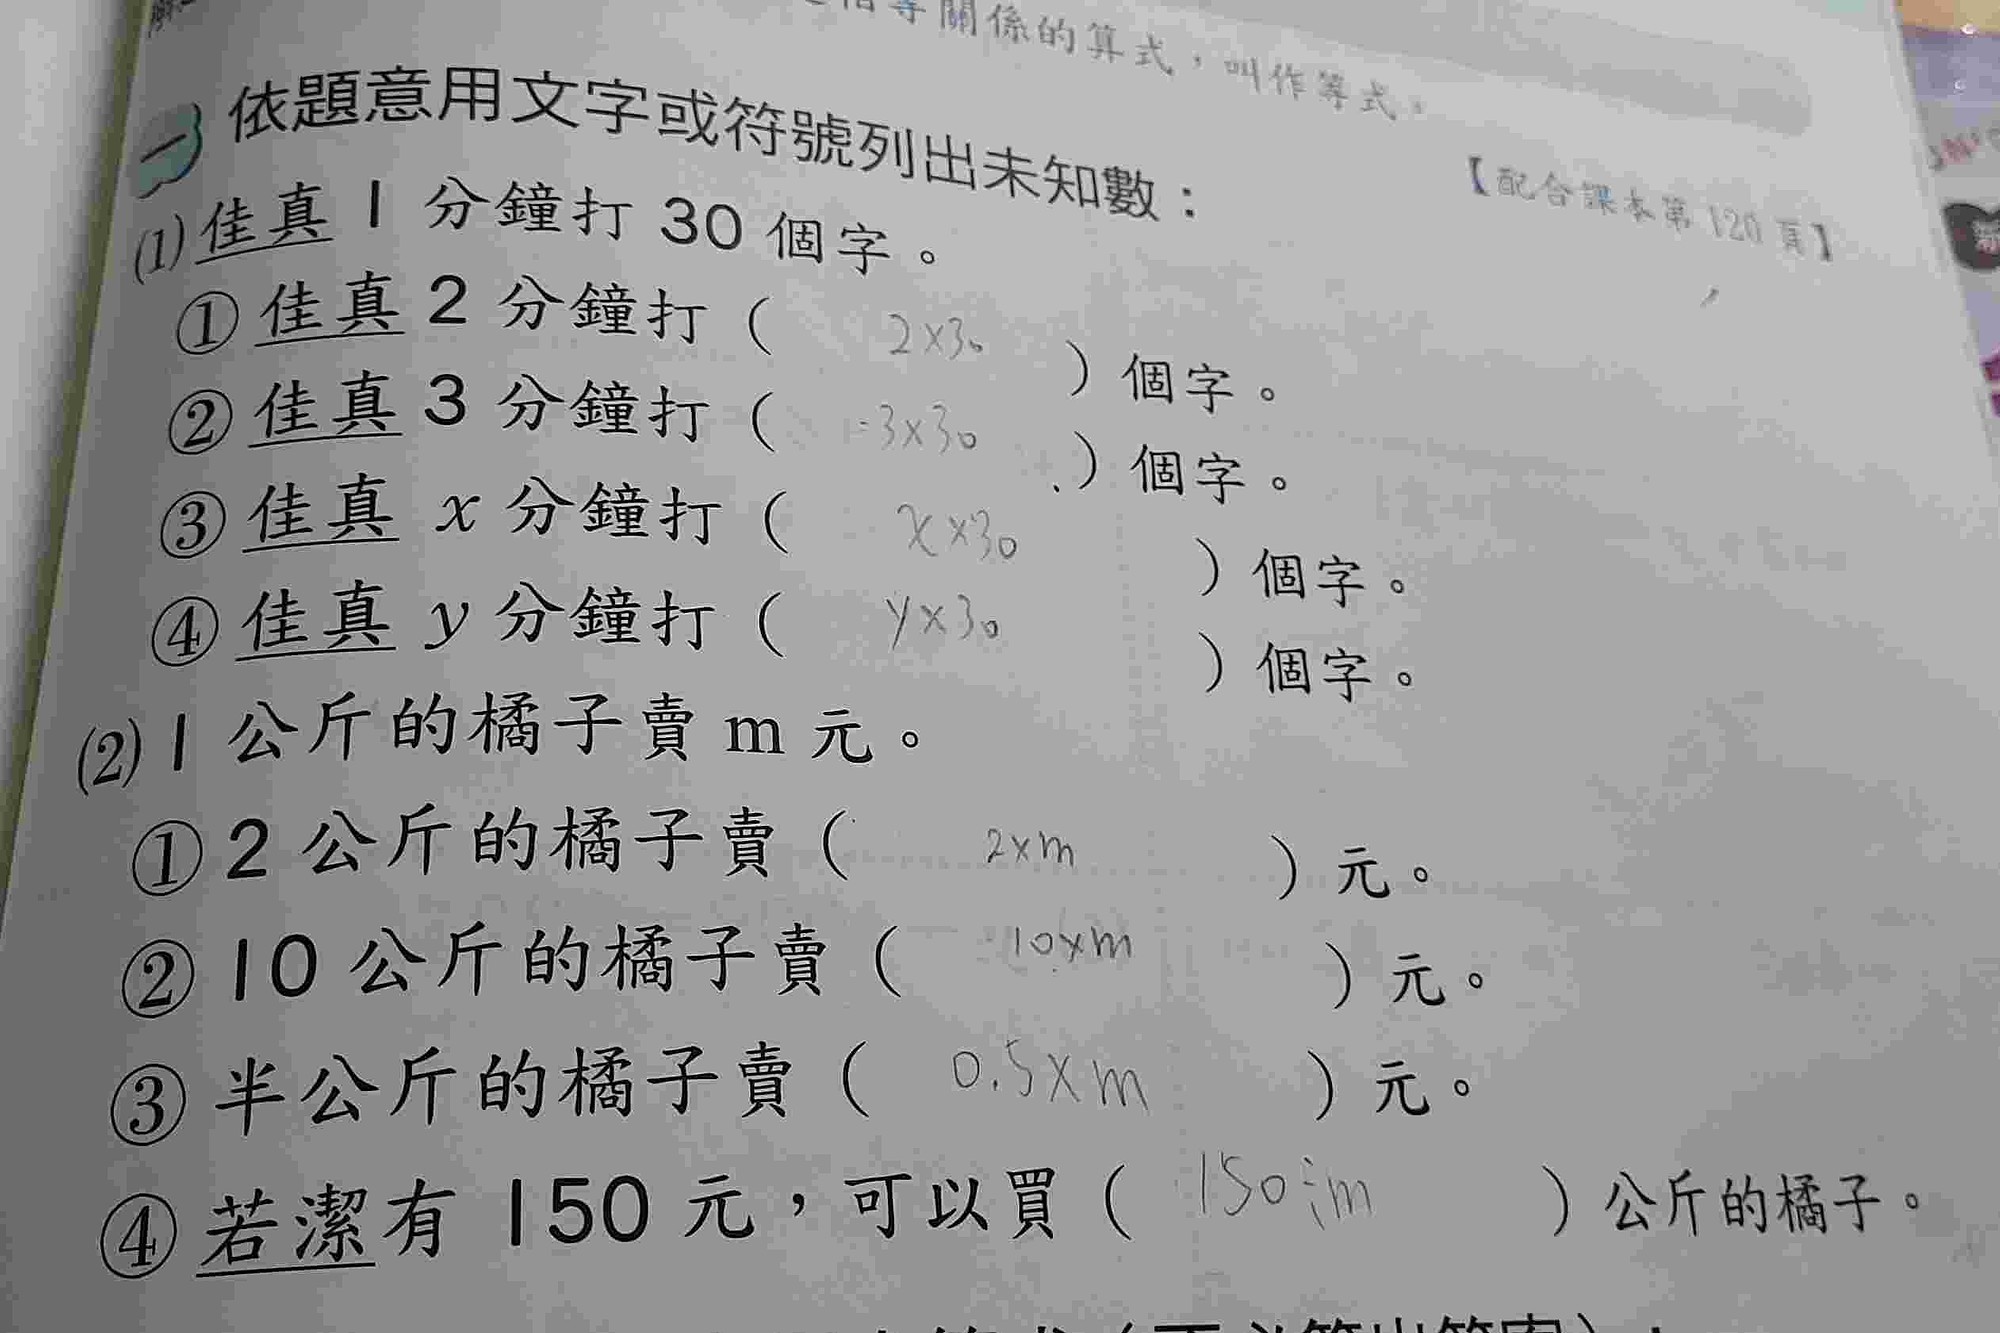 相等關係的算式，叫作等式。
一 依題意用文字或符號列出未知數：
【配合課本第120頁】
(1)佳真1分鐘打30個字。
①佳真2分鐘打（2×30）個字。
②佳真3分鐘打（3×30）個字。
③佳真x分鐘打（x×30）個字。
④佳真y分鐘打（y×30）個字。
(2)1公斤的橘子賣m元。
①2公斤的橘子賣（2×m）元。
②10公斤的橘子賣（10×m）元。
③半公斤的橘子賣（0.5×m）元。
④若潔有150元，可以買（150÷m）公斤的橘子。